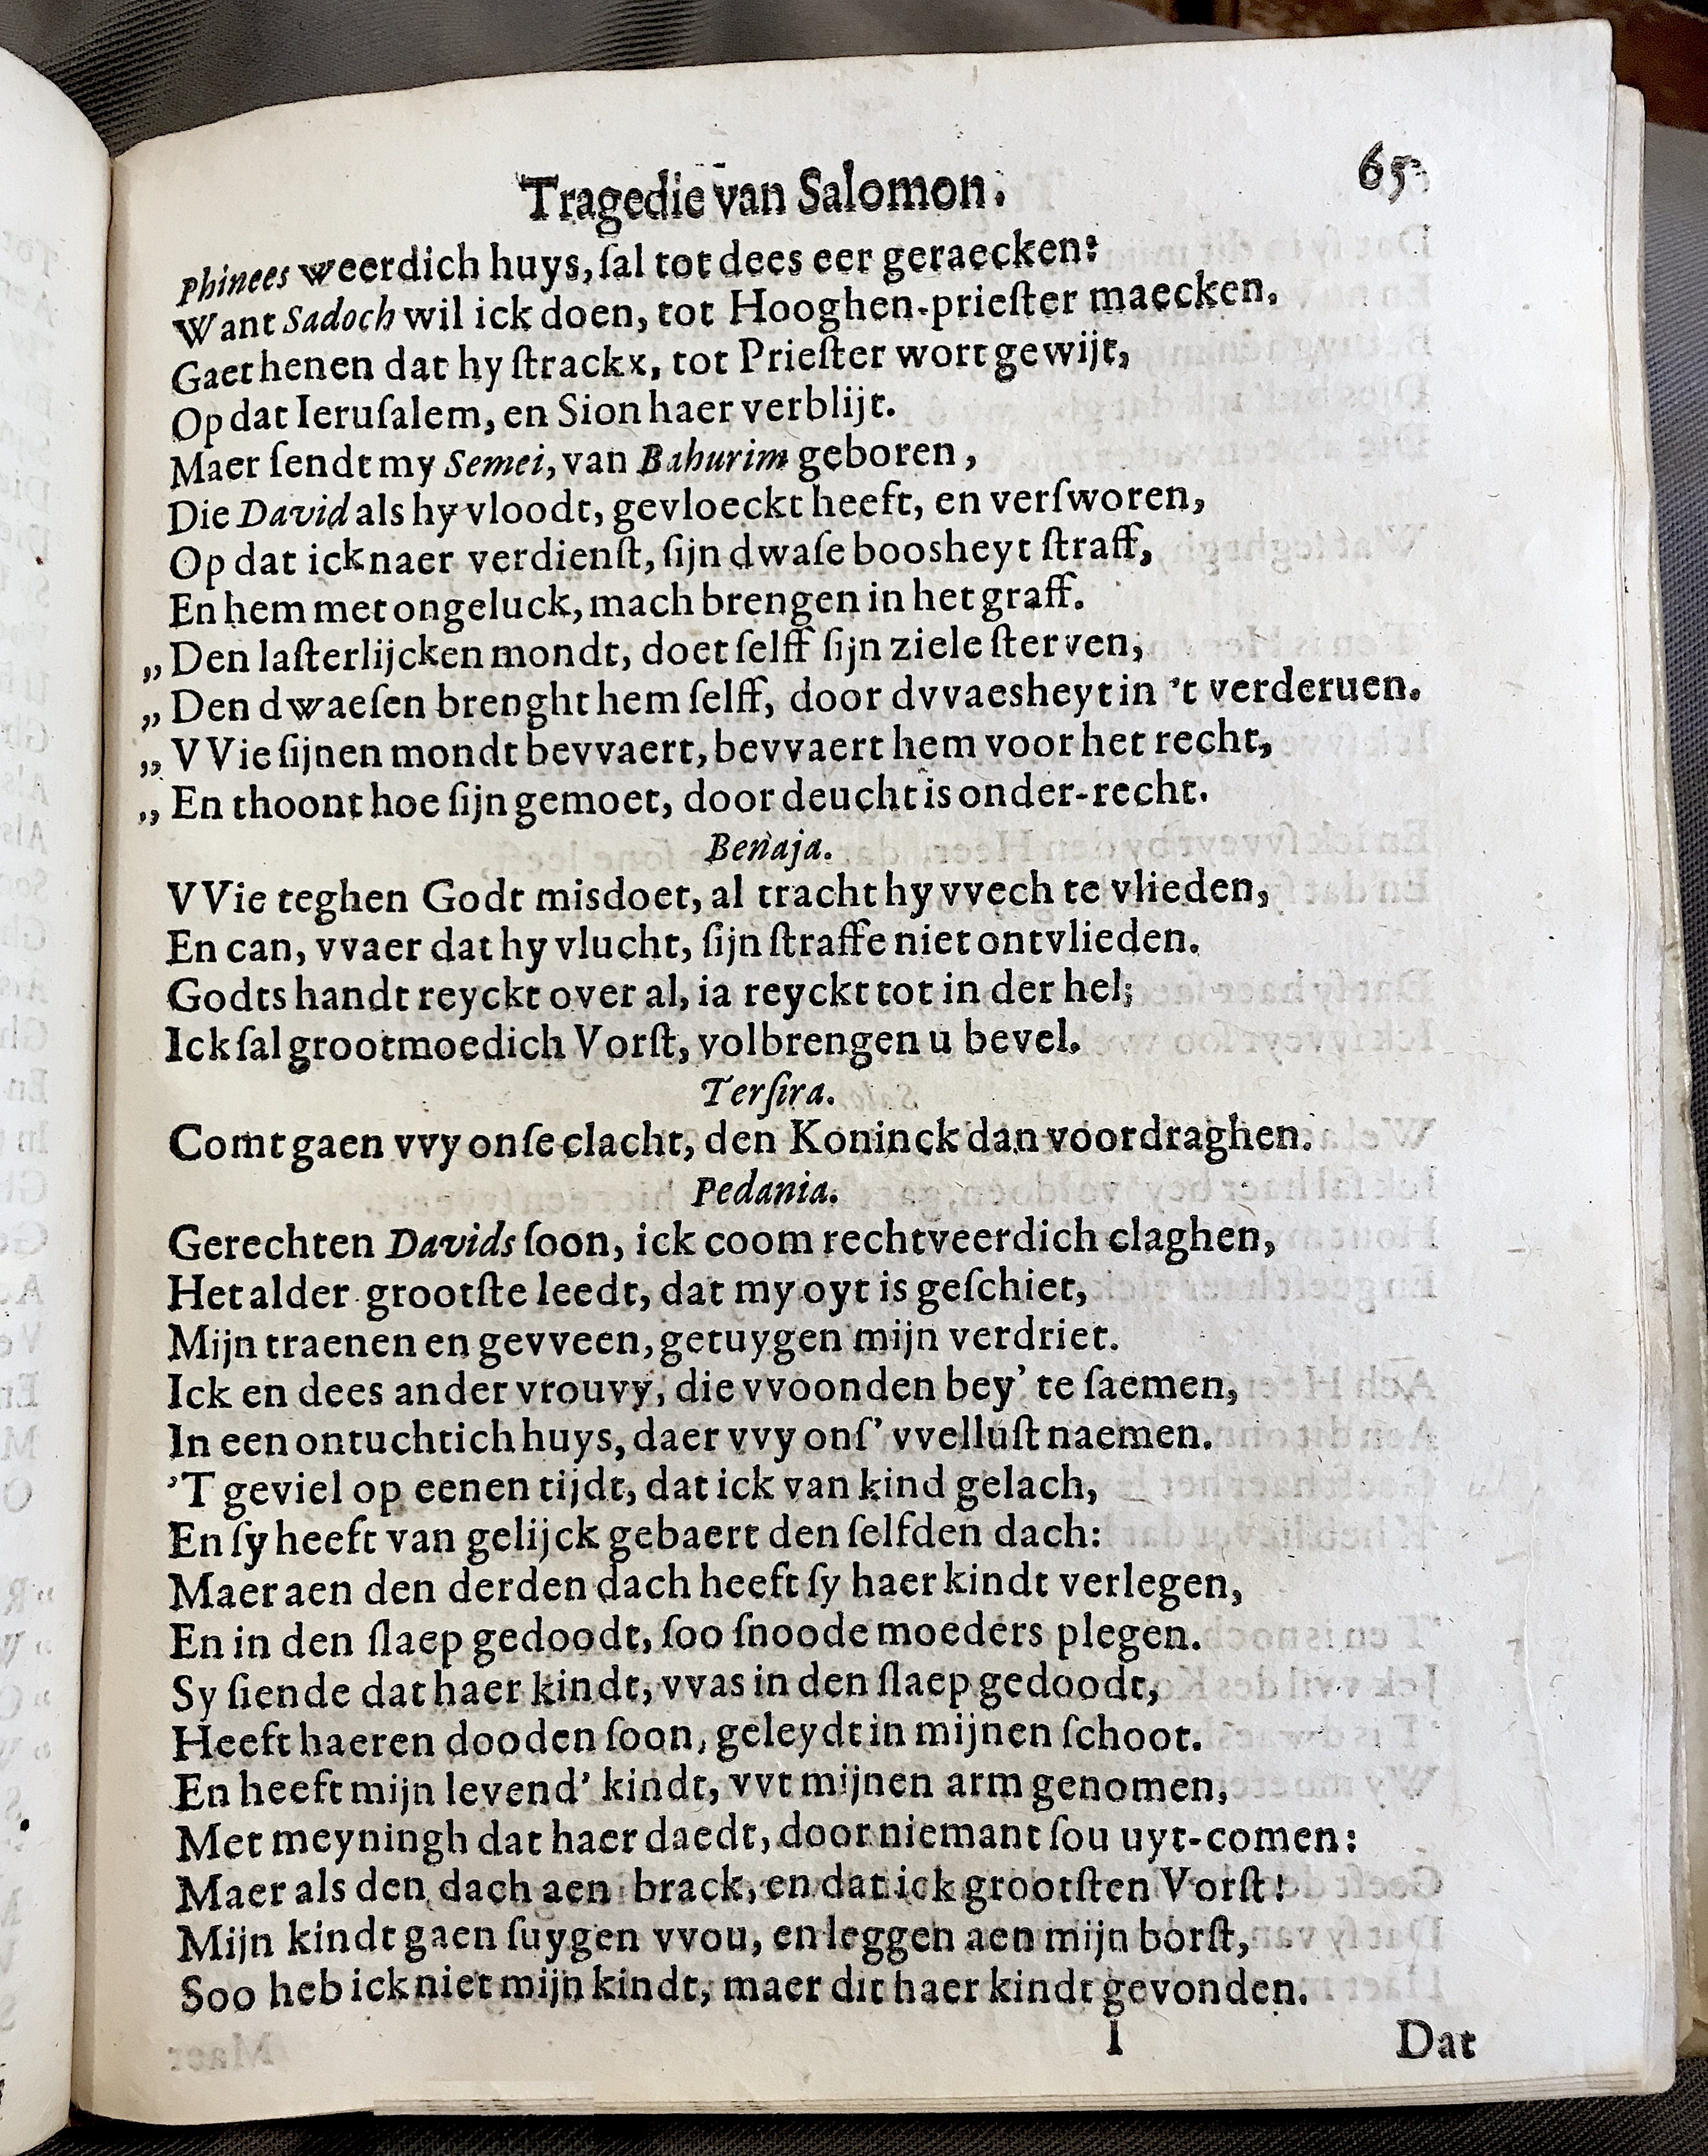 Tragedie van Salomon. 65
Phinees weerdich huys, ſal tot dees eer geraecken:
Want Sadoch wil ick doen, tot Hooghen-prieſter maecken.
Gaet henen dat hy ſtrackx, tot Prieſter wort gewijt,
Op dat Ieruſalem, en Sion haer verblijt.
Maer ſendt my Semei, van Bahurim geboren,
Die David als hy vloodt, gevloeckt heeft, en verſworen,
Op dat ick naer verdienſt, ſijn dwaſe boosheyt ſtraff,
En hem met ongeluck, mach brengen in het graff.
„ Den laſterlijcken mondt, doet ſelff ſijn ziele ſterven,
„ Den dwaeſen brenght hem ſelff, door dvvaesheyt in 't verderuen.
„ VVie ſijnen mondt bevvaert, bevvaert hem voor het recht,
„ En thoont hoe ſijn gemoet, door deucht is onder-recht.
Benaja.
VVie teghen Godt misdoet, al tracht hy vvech te vlieden,
En can, vvaer dat hy vlucht, ſijn ſtraffe niet ontvlieden.
Godts handt reyckt over al, ia reyckt tot in der hel;
Ick ſal grootmoedich Vorſt, volbrengen u bevel.
Terſira.
Comt gaen vvy onſe clacht, den Koninck dan voordraghen.
Pedania.
Gerechten Davids ſoon, ick coom rechtveerdich claghen,
Het alder grootſte leedt, dat my oyt is geſchiet,
Mijn traenen en gevveen, getuygen mijn verdriet.
Ick en dees ander vrouvy, die vvoonden bey' te ſaemen,
In een ontuchtich huys, daer vvy onſ' vvelluſt naemen.
'T geviel op eenen tijdt, dat ick van kind gelach,
En ſy heeft van gelijck gebaert den ſelfden dach:
Maer aen den derden dach heeft ſy haer kindt verlegen,
En in den ſlaep gedoodt, ſoo ſnoode moeders plegen.
Sy ſiende dat haer kindt, vvas in den ſlaep gedoodt,
Heeft haeren dooden ſoon, geleydt in mijnen ſchoot.
En heeft mijn levend' kindt, vvt mijnen arm genomen,
Met meyningh dat haer daedt, door niemant ſou uyt-comen:
Maer als den dach aen brack, en dat ick grootſten Vorſt!
Mijn kindt gaen ſuygen vvou, en leggen aen mijn borſt,
Soo heb ick niet mijn kindt, maer dit haer kindt gevonden.
I Dat